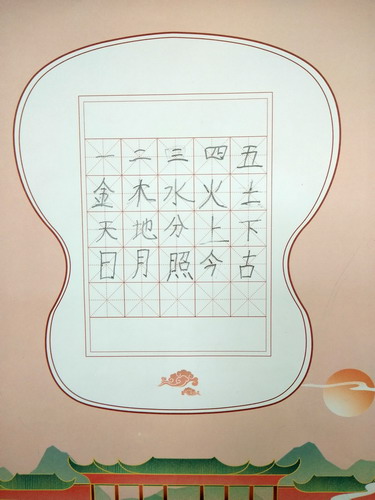 一二三四五
金木水火土
天地分上下
日月照今古